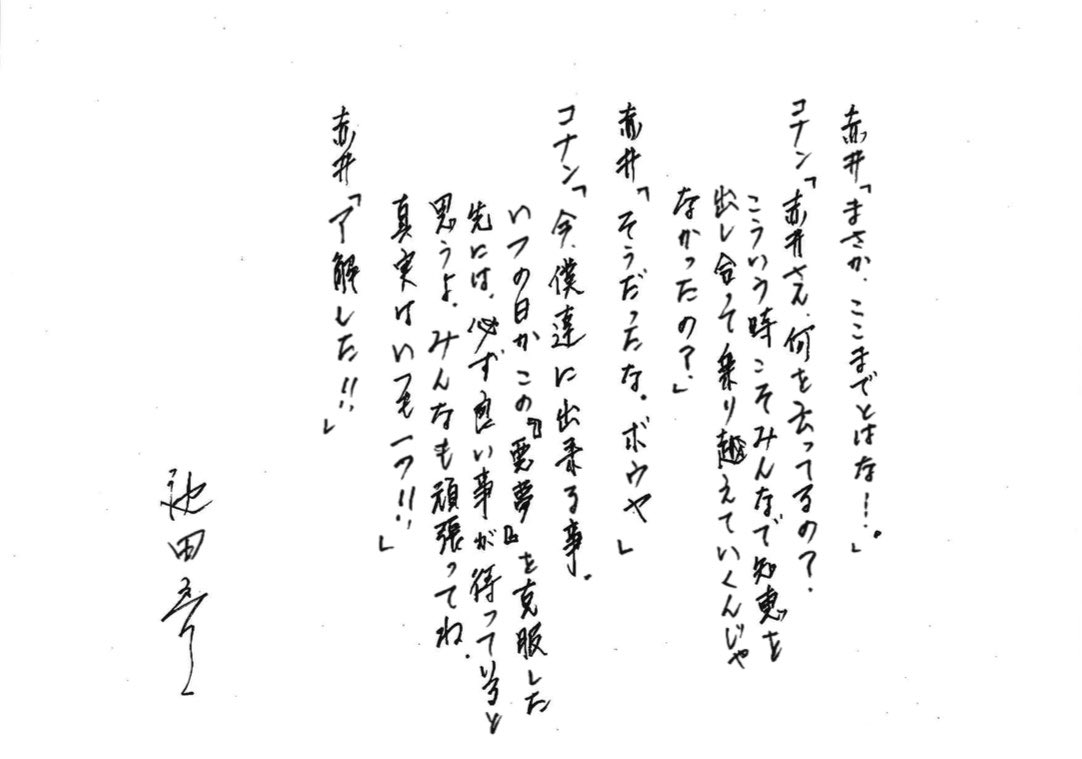 赤井「まさか、ここまでとはな…。」
コナン「赤井さん、何を云ってるの？
こういう時こそみんなで知恵を
出し合って乗り越えていくんじゃ
なかったの？」
赤井「そうだったな。ボウヤ」
コナン「今、僕達に出来る事。
いつの日かこの『悪夢』を克服した
先には、必ず良い事が待っていると
思うよ。みんなも頑張ってね。
真実はいつも一つ!!」
赤井「了解した!!」
池田秀一